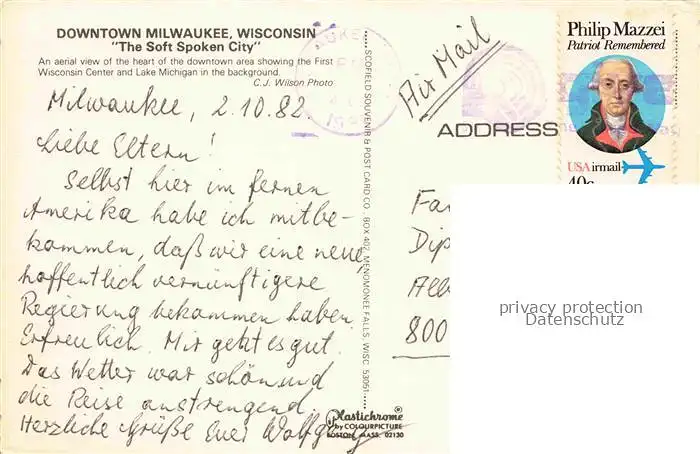 DOWNTOWN MILWAUKEE, WISCONSIN
"The Soft Spoken City"
An aerial view of the heart of the downtown area showing the First
Wisconsin Center and Lake Michigan in the background.
C.J. Wilson Photo
Milwaukee, 2.10.82
Liebe Eltern!
Selbst hier im fernen
Amerika habe ich mitbe-
kommen, daß wir eine neue,
hoffentlich vernünftigere
Regierung bekommen haben.
Erfreulich. Mir geht es gut.
Das Wetter war schön und
die Reise anstrengend.
Herzliche Grüße Euer Wolfgang
Plastichrome®
by COLOURPICTURE
BOSTON, MASS. 02130
SCOFIELD SOUVENIR & POST CARD CO. BOX 402, MENOMONEE FALLS, WISC. 53051
Air Mail
ADDRESS
Philip Mazzei
Patriot Remembered
USAirmail
40c
Fa
Dip
All
800
privacy protection
Datenschutz